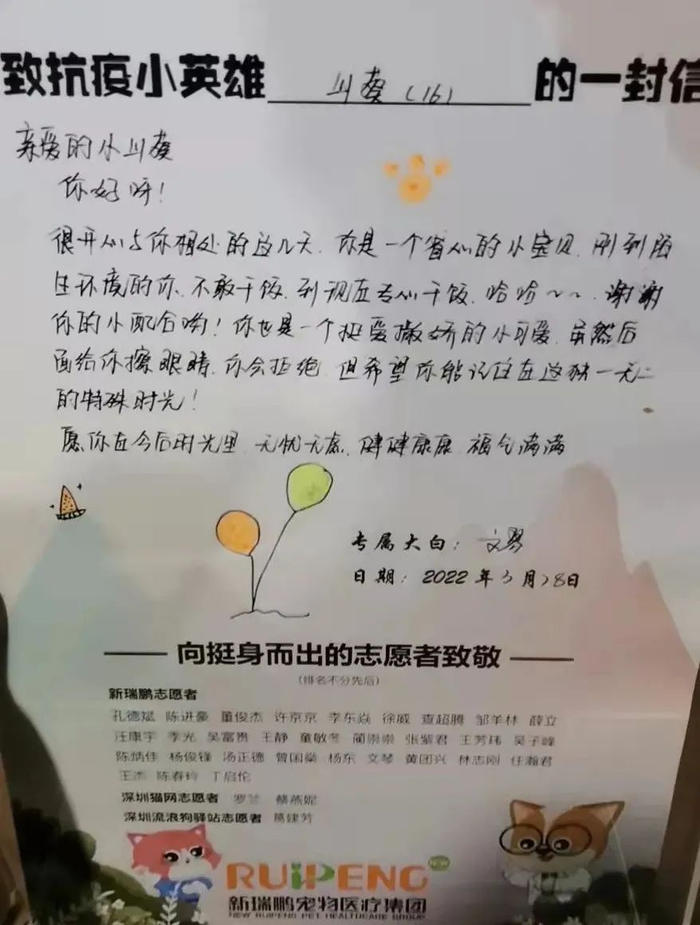 致抗疫小英雄 川葵(16) 的一封信
亲爱的小川葵
你好呀!
很开心与你相处的这几天.你是一个省心的小宝贝.刚到陌
生环境的你.不敢干饭.到现在专心干饭.哈哈~~.谢谢
你的小配合哟!你也是一个挺爱撒娇的小可爱.虽然后
面给你擦眼睛.你会拒绝.但希望你能记住在这独一无二
的特殊时光!
愿你在今后时光里.无忧无虑.健健康康.福气满满
专属大白:文琴
日期:2022年3月28日
向挺身而出的志愿者致敬
(排名不分先后)
新瑞鹏志愿者
孔德斌 陈进豪 董俊杰 许京京 李东焱 徐威 查超腾 邹羊林 薛立
汪康宇 李光 吴富贵 王静 童敏冬 蔺崇崇 张紫君 王芳玮 吴子峰
陈炳佳 杨俊锋 汤正德 曾国燊 杨东 文琴 黄团兴 林志刚 任瀚君
王杰 陈春玲 丁启伦
深圳猫网志愿者 罗兰 蔡燕妮
深圳流浪狗驿站志愿者 葛婕芳
RUIPENG NEW
新瑞鹏宠物医疗集团
NEW RUIPENG PET HEALTHCARE GROUP